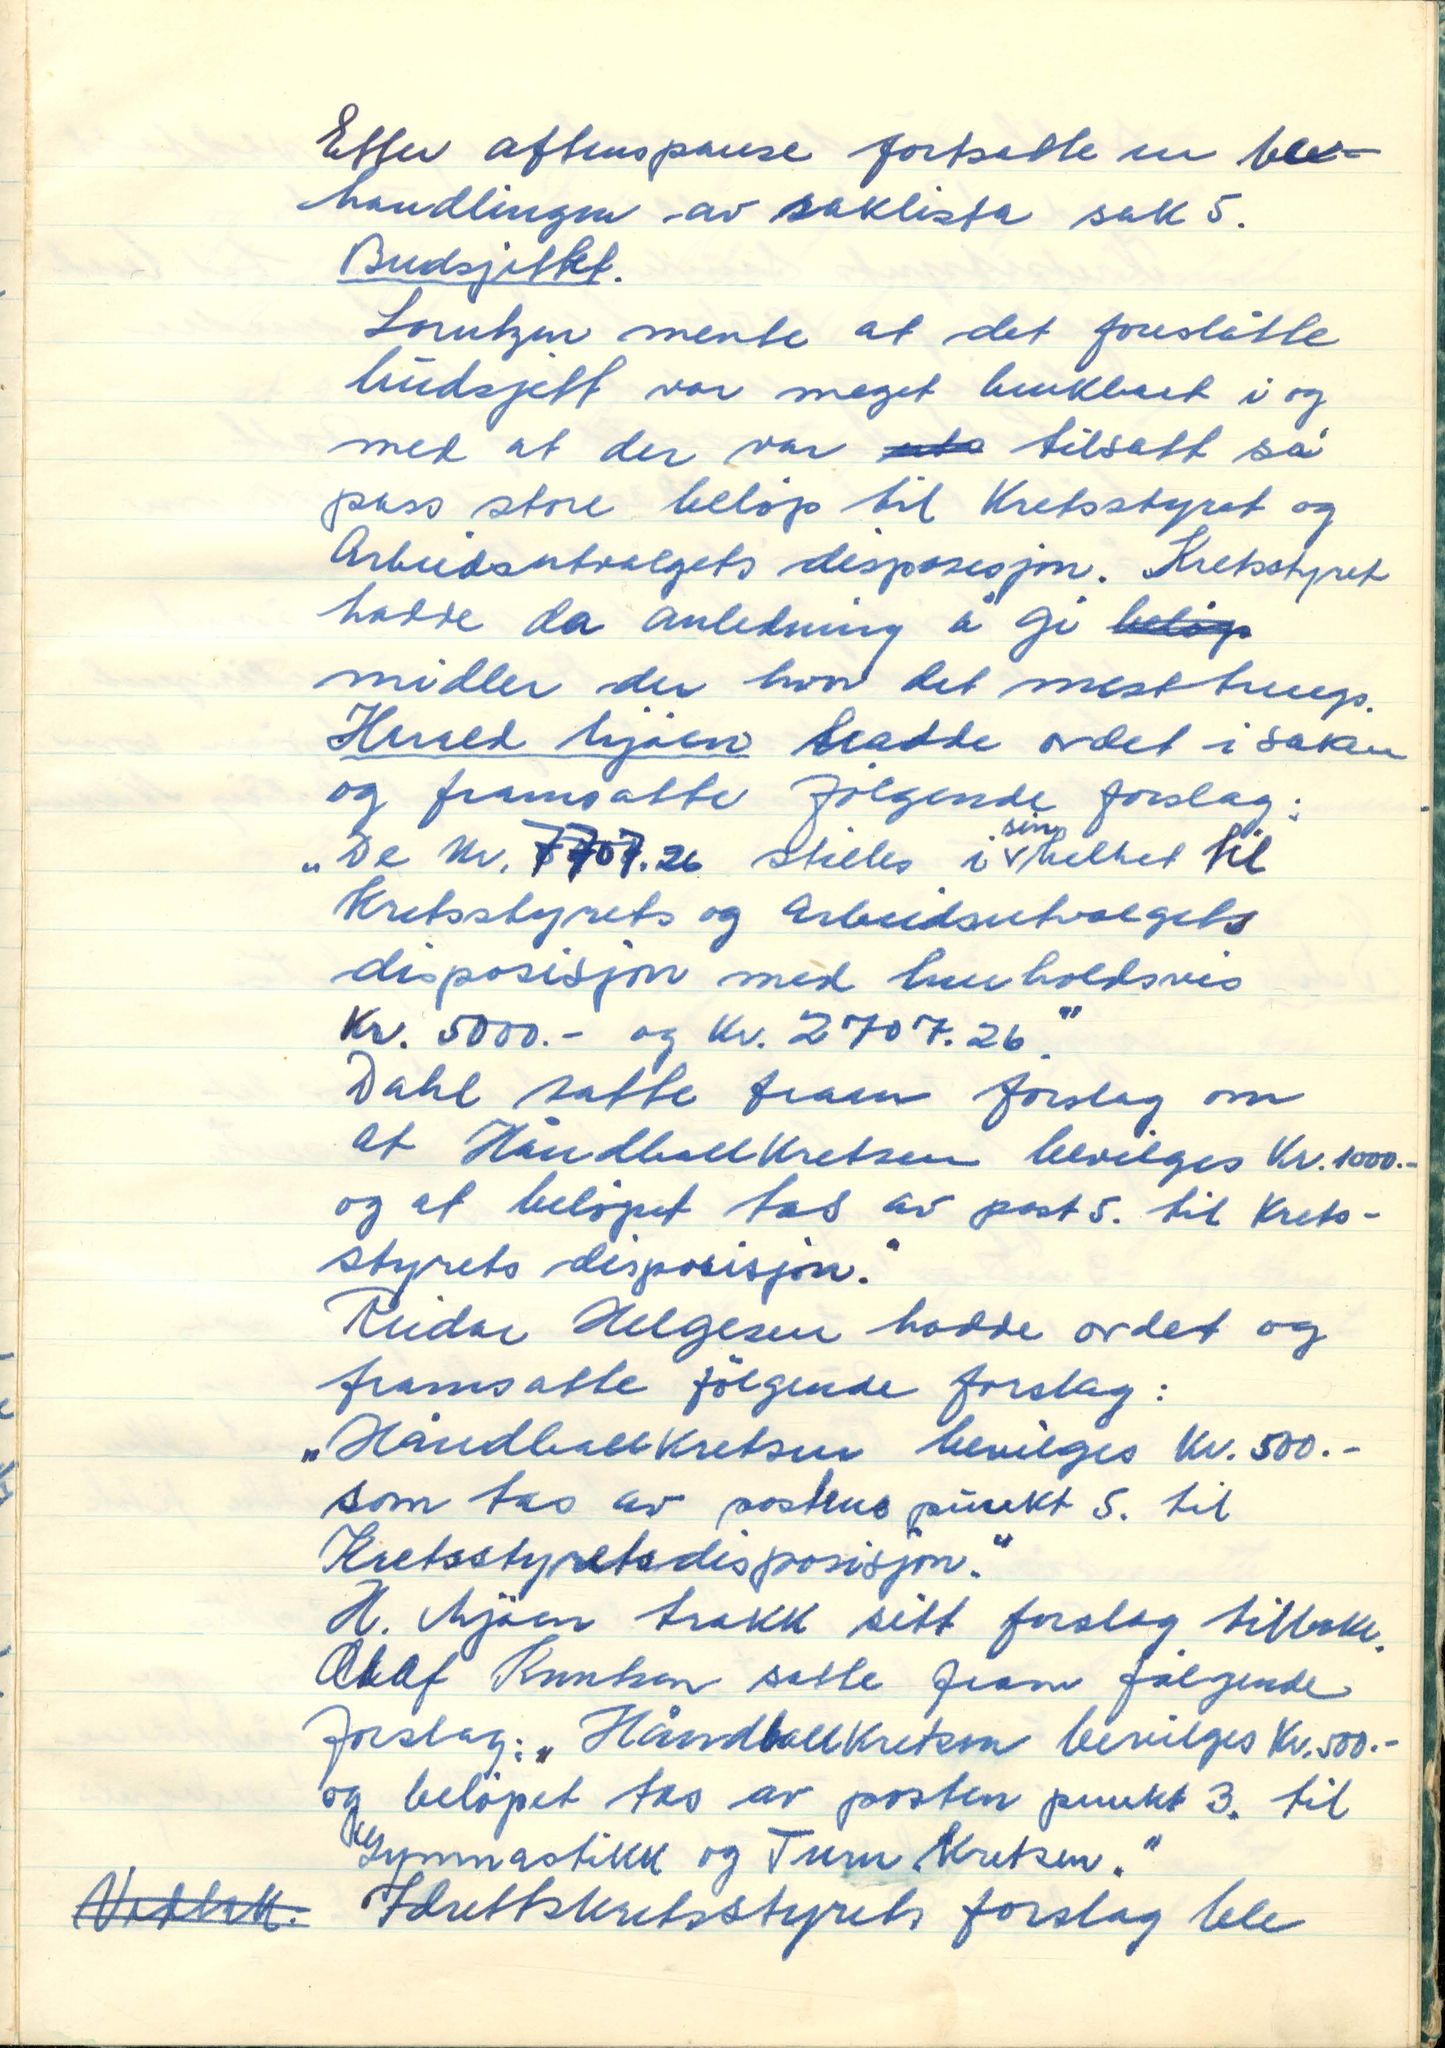 Etter aftenspause fortsatte en be-
handlingen av saklista sak 5.
Budsjettet.
Lorntzen mente at det foreslåtte
budsjett var meget brukbart i og
med at der var tilsatt så
pass store beløp til Kretsstyret og
Arbeidsutvalgets disposisjon. Kretsstyret
hadde da anledning å gi beløp
midler der hvor det mest trengs.
Harald Mjöen hadde ordet i saken
og framsatte følgende forslag:
„De Kr. 7707.26 stilles i sin helhet til
Kretsstyrets og Arbeidsutvalgets
disposisjon med henholdsvis
Kr. 5000.- og Kr. 2707.26."
Dahl satte fram forslag om
at Håndballkretsen bevilges Kr. 1000.-
og at beløpet tas av post 5. til Krets-
styrets disposisjon."
Reidar Helgesen hadde ordet og
framsatte følgende forslag:
„Håndballkretsen bevilges Kr. 500.-
som tas av postens punkt 5. til
Kretsstyrets disposisjon."
H. Mjöen trakk sitt forslag tilbake.
Olaf Knutsen satte fram følgende
forslag: „Håndballkretsen bevilges Kr. 500.-
og beløpet tas av posten punkt 3. til
Gymnastikk og Turn Kretsen."
Vedtak. Idrettskretsstyrets forslag ble